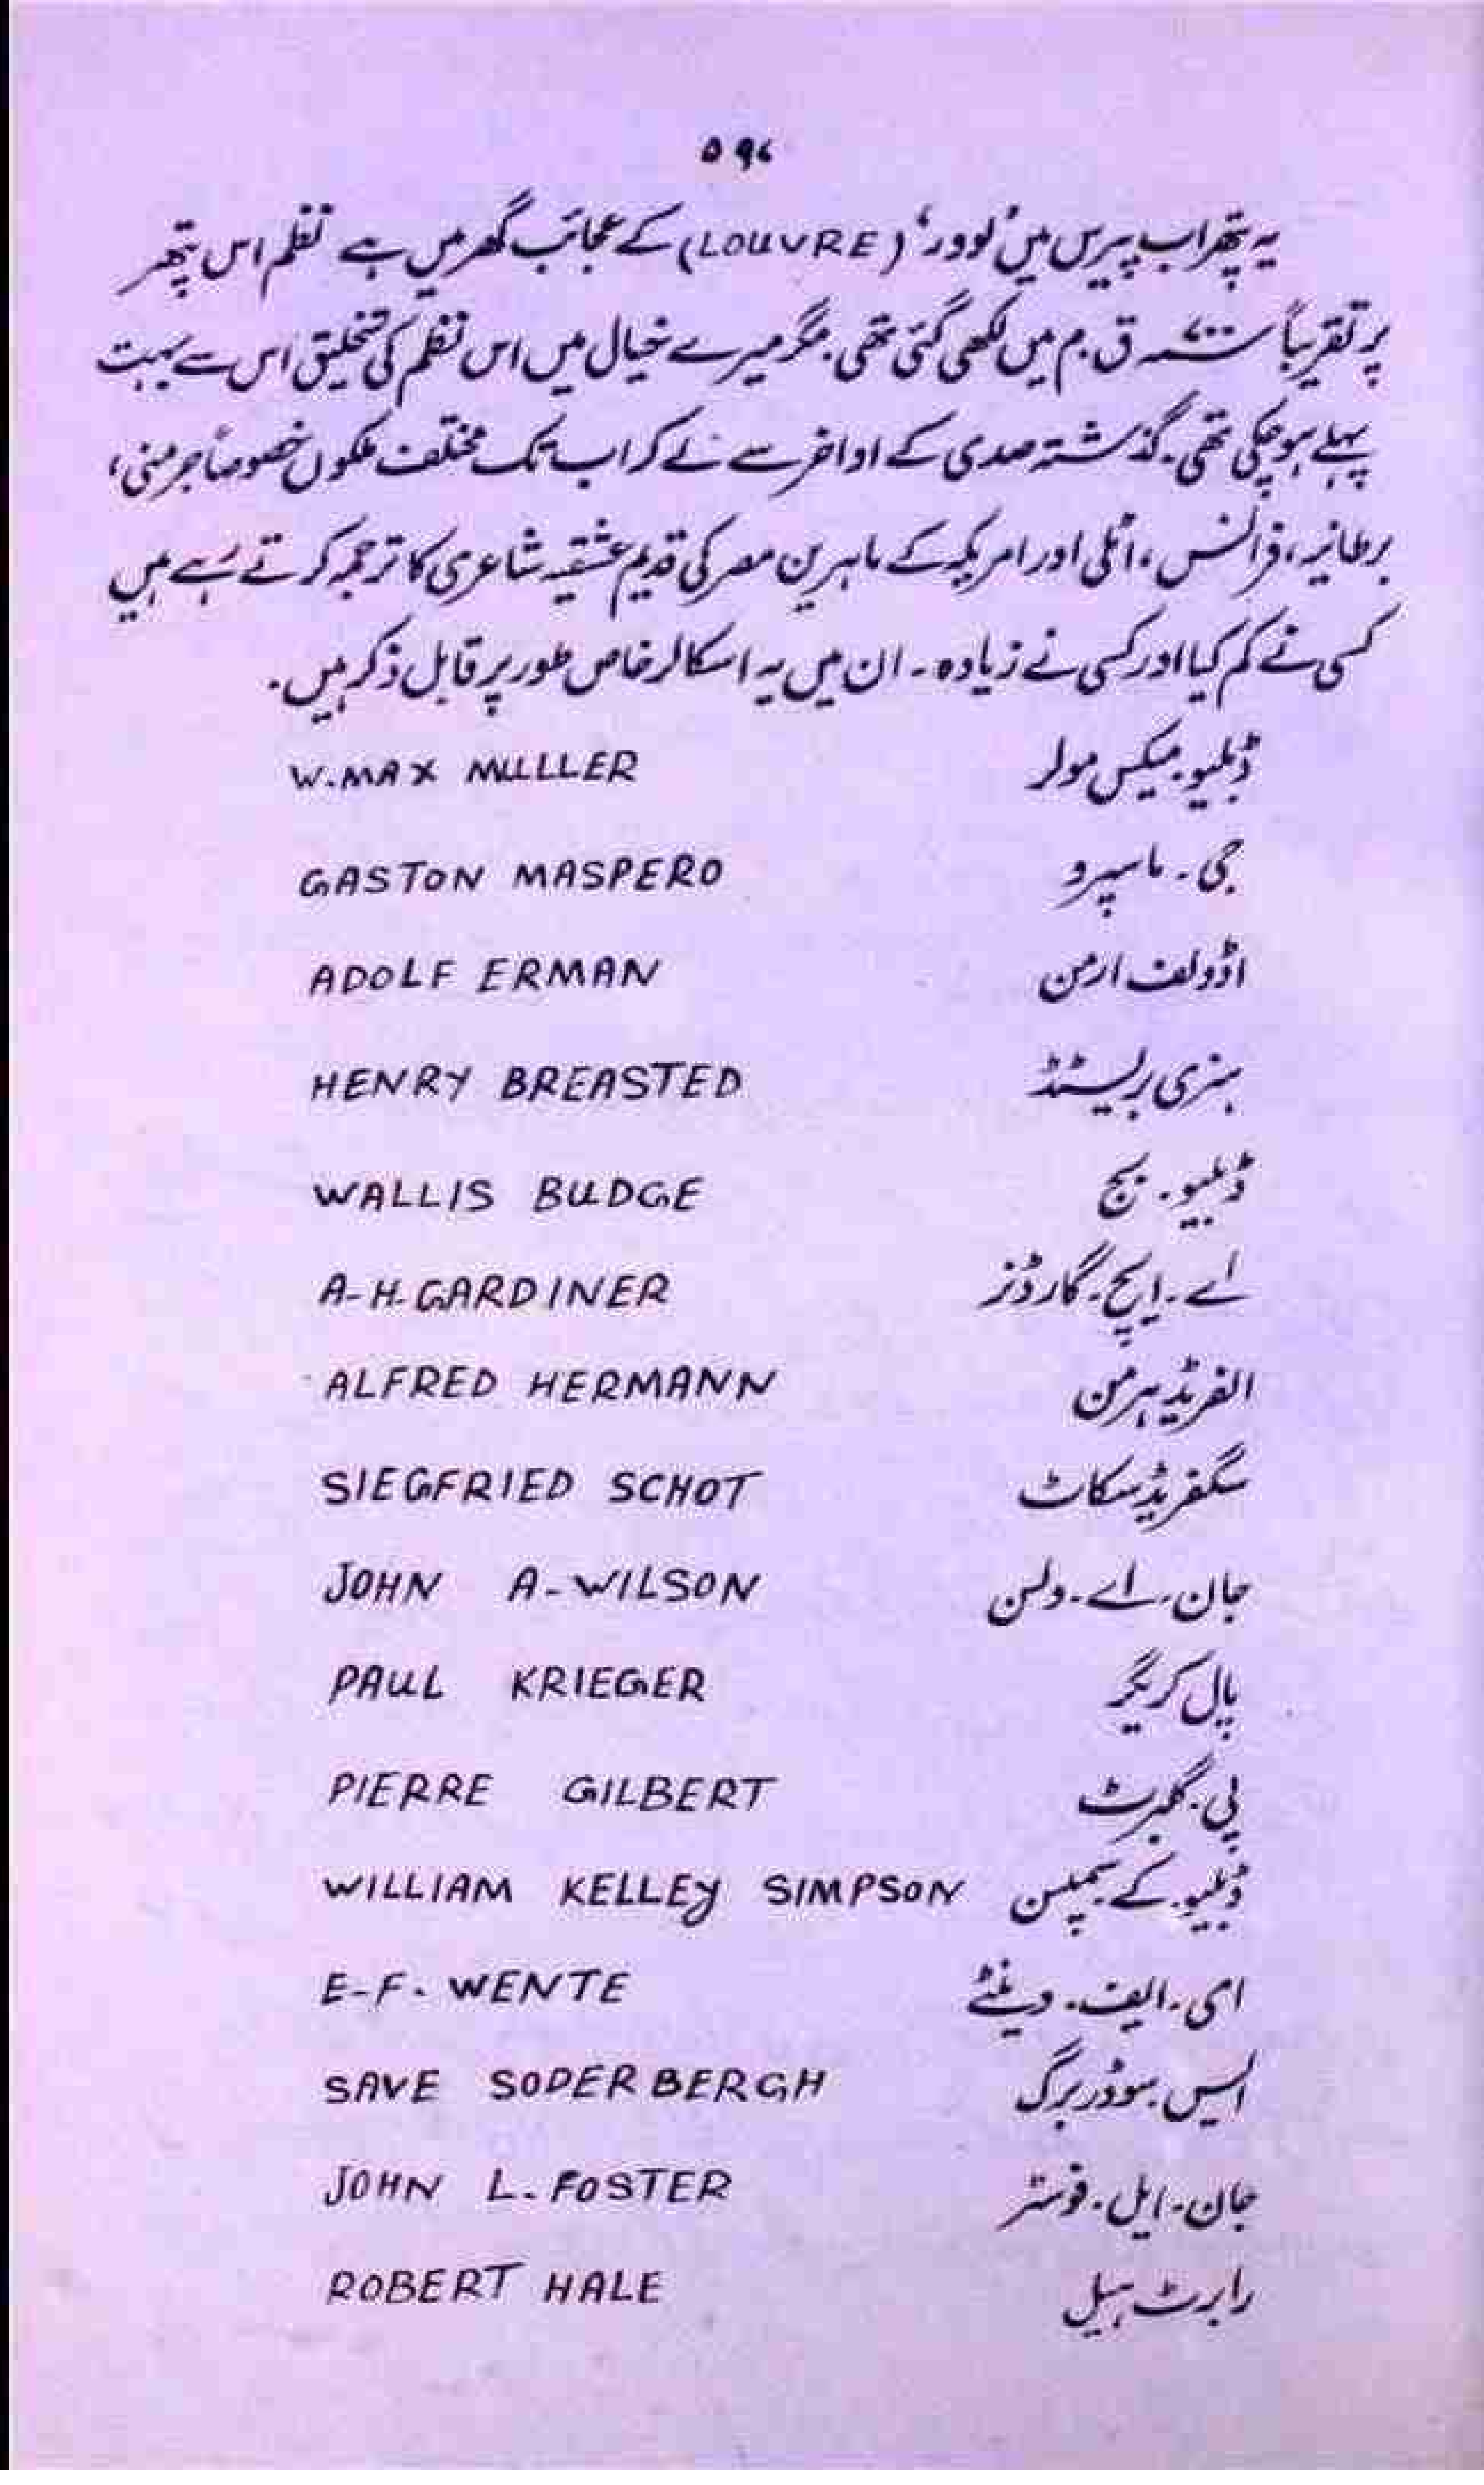 ۵۹۷
یہ پتھر اب پیرس میں 'لوور' (LOUVRE) کے عجائب گھر میں ہے نظم اس پتھر
پر تقریباً ق.م میں لکھی گئی تھی. مگر میرے خیال میں اس نظم کی تخلیق اس سے بہت
پہلے ہو چکی تھی. گذشتہ صدی کے اواخر سے لے کر اب تک مختلف ملکوں خصوصاً جرمنی،
برطانیہ، فرانس، اٹلی اور امریکہ کے ماہرین مصر کی قدیم عشقیہ شاعری کا ترجمہ کرتے رہے ہیں
کسی نے کم کیا اور کسی نے زیادہ۔ ان میں یہ اسکالر خاص طور پر قابل ذکر ہیں.
ڈبلیو. میکس مولر W. MAX MULLLER
جی۔ ماسپرو GASTON MASPERO
اڈولف ارمن ADOLF ERMAN
ہنری بریسٹڈ HENRY BREASTED
ڈبلیو. بج WALLIS BUDGE
اے۔ ایچ. گارڈنر A-H. GARDINER
الفریڈ ہرمن ALFRED HERMANN
سگفریڈ سکاٹ SIEGFRIED SCHOT
جان. اے. ولسن JOHN A-WILSON
پال کریگر PAUL KRIEGER
پی. گلبرٹ PIERRE GILBERT
ڈبلیو. کے سمپسن WILLIAM KELLEY SIMPSON
ای. ایف. وینٹے E-F. WENTE
ایس. سوڈر برگ SAVE SODERBERGH
جان. ایل. فوسٹر JOHN L. FOSTER
رابرٹ ہیل ROBERT HALE